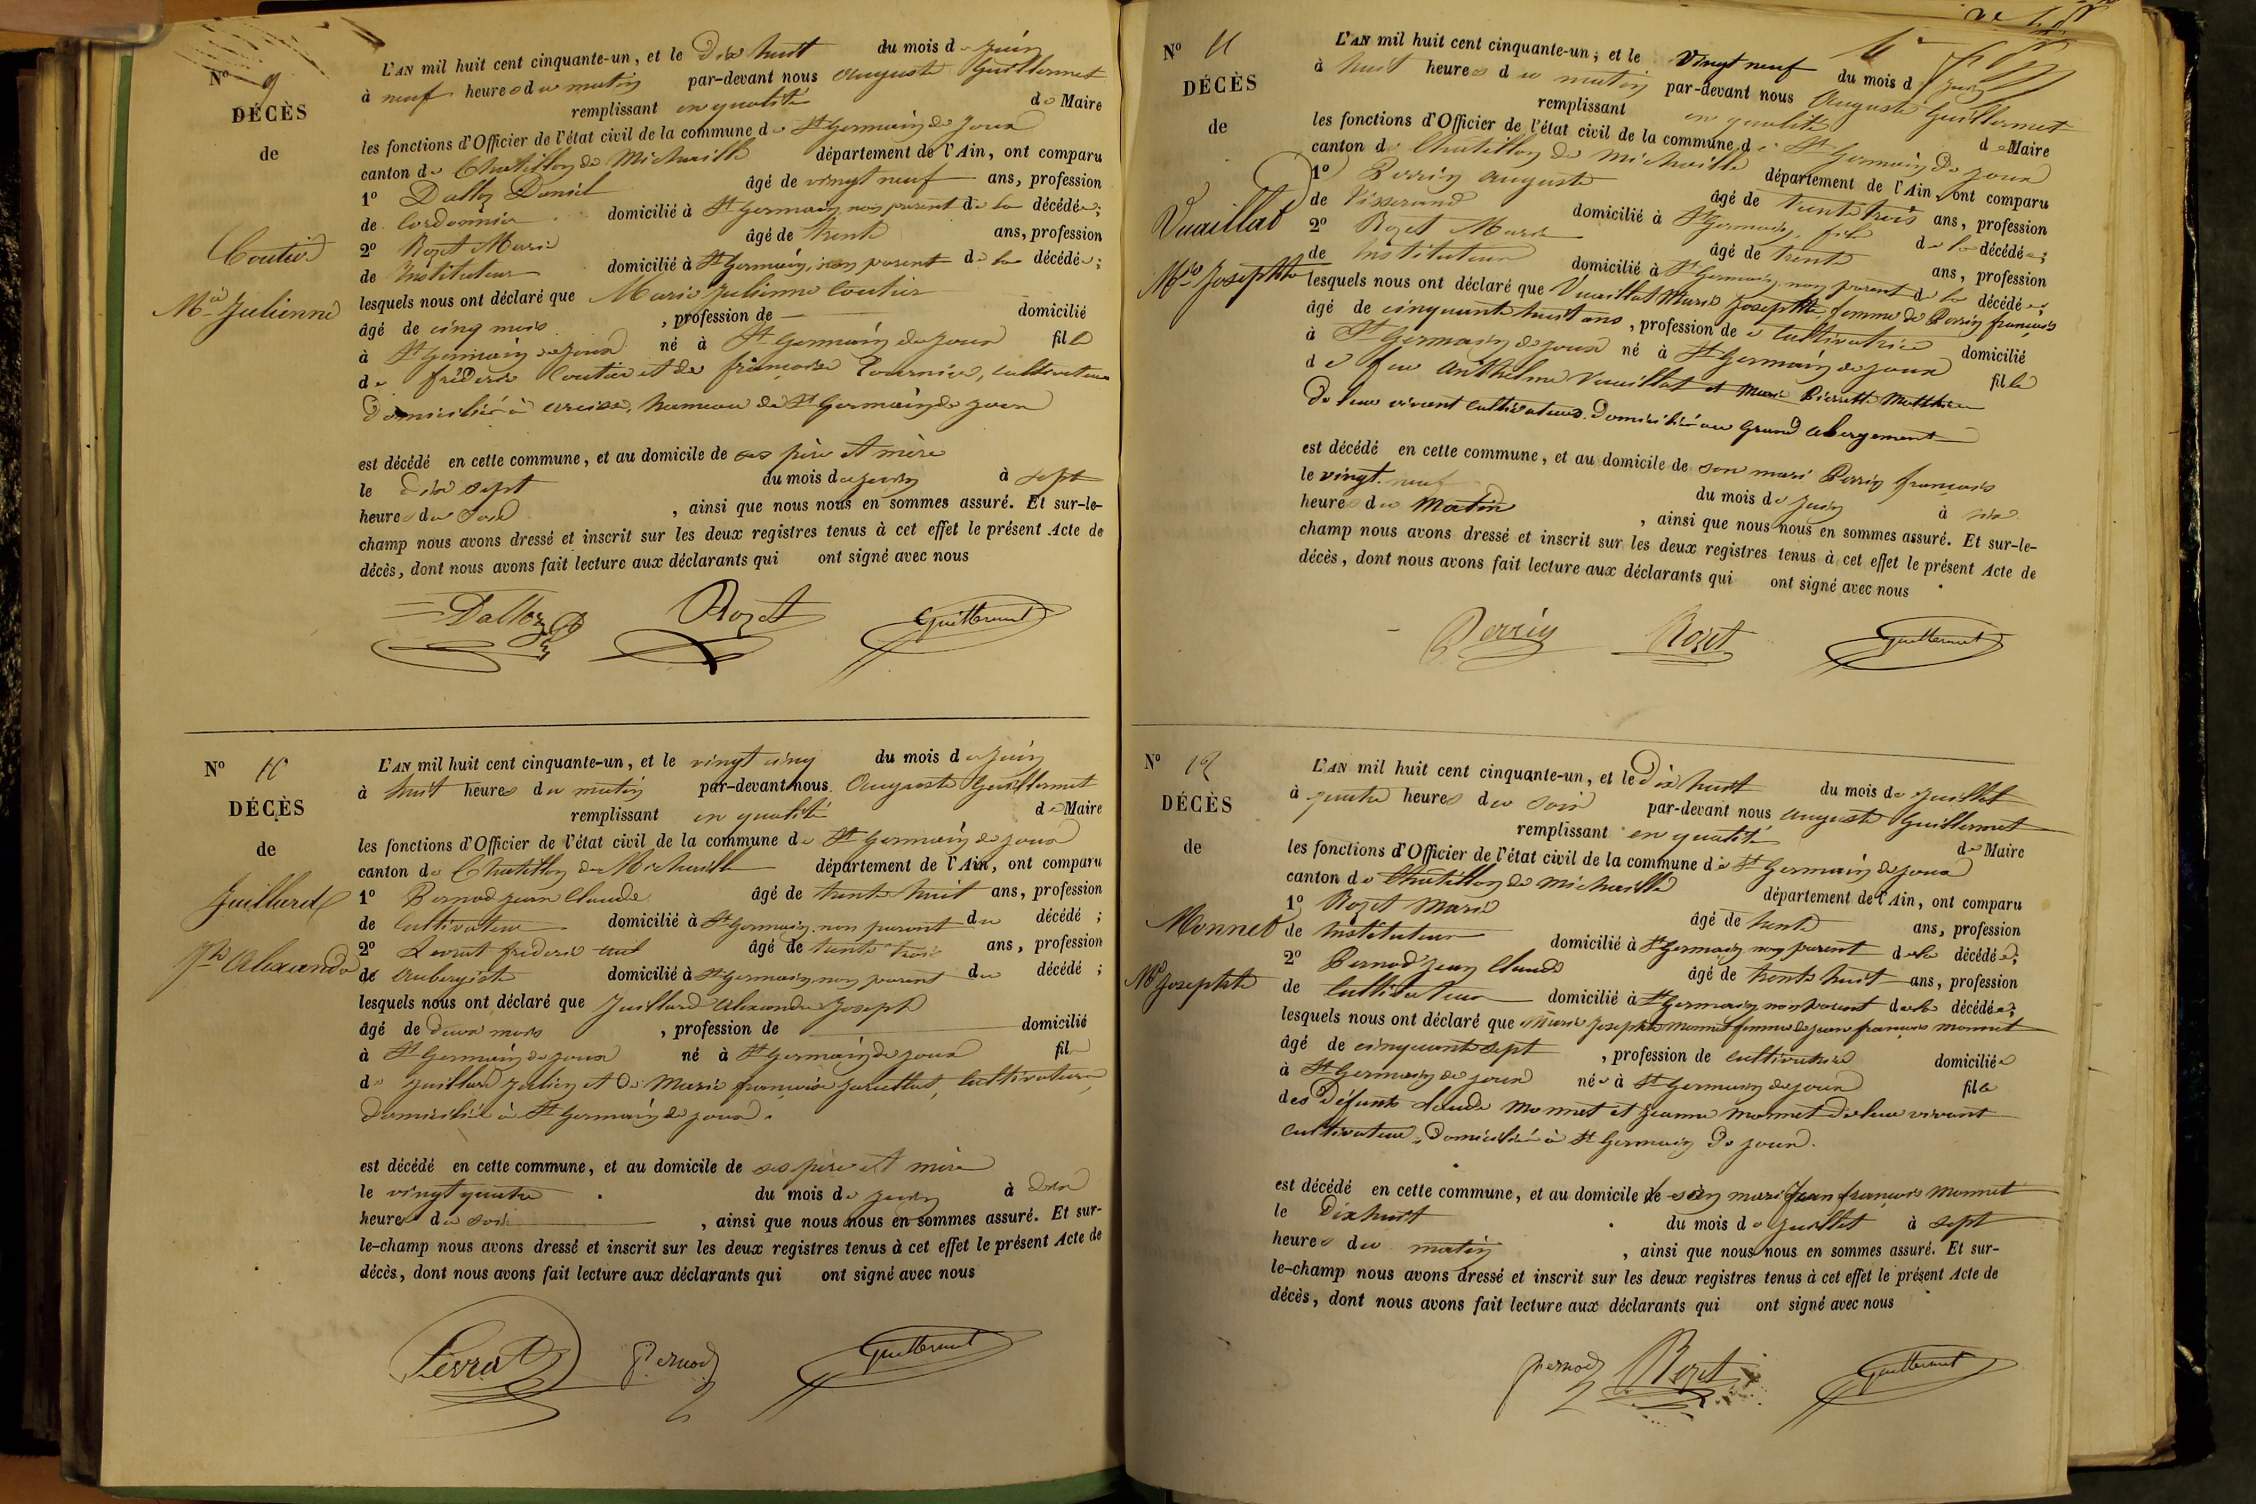 N° 9
DÉCÈS
de
Coutier
Mie Julienne
L'AN mil huit cent cinquante-un, et le Dix huit du mois de Juin
à neuf heures du matin par-devant nous Auguste Guillermet
remplissant en qualité de Maire
les fonctions d'Officier de l'état civil de la commune de St Germain de Joux
canton de Chatillon de Michaille département de l'Ain, ont comparu
1° Dalloz Daniel âgé de vingt neuf ans, profession
de Cordonnier domicilié à St Germain, non parent de la décédée;
2° Rozet Marie âgé de trente ans, profession
de Instituteur domicilié à St Germain, non parent de la décédée;
lesquels nous ont déclaré que Marie Julienne Coutier
âgé de cinq mois, profession de domicilié
à St Germain de Joux né à St Germain de Joux fille
de fréderic Coutier et de françoise Tournier, cultivateurs
Domiciliés à hameau de St Germain de Joux
est décédé en cette commune, et au domicile de ses père et mère
le dix sept du mois de juin à sept
heures du soir, ainsi que nous nous en sommes assuré. Et sur-le-
champ nous avons dressé et inscrit sur les deux registres tenus à cet effet le présent Acte de
décès, dont nous avons fait lecture aux déclarants qui ont signé avec nous
Dalloz Rozet Guillermet
N° 10
DÉCÈS
de
Juillard
Jh Alexandre
L'AN mil huit cent cinquante-un, et le vingt cinq du mois de Juin
à huit heures du matin par-devant nous Auguste Guillermet
remplissant en qualité de Maire
les fonctions d'Officier de l'état civil de la commune de St Germain de Joux
canton de Chatillon de Michaille département de l'Ain, ont comparu
1° Pernod Jean Claude âgé de trente huit ans, profession
de Cultivateur domicilié à St Germain, non parent du décédé;
2° Levrat frederic âgé de trente trois ans, profession
de Aubergiste domicilié à St Germain, non parent du décédé;
lesquels nous ont déclaré que Juillard Alexandre Joseph
âgé de Deux mois, profession de domicilié
à St Germain de Joux né à St Germain de Joux fils
de Juillard Julien et de Marie françoise cultivateurs
Domiciliés à St Germain de Joux.
est décédé en cette commune, et au domicile de ses père et mère
le vingt quatre du mois de juin à dix
heures du soir, ainsi que nous nous en sommes assuré. Et sur-
le-champ nous avons dressé et inscrit sur les deux registres tenus à cet effet le présent Acte de
décès, dont nous avons fait lecture aux déclarants qui ont signé avec nous
Levrat Pernod Guillermet
N° 11
DÉCÈS
de
Vuaillat
Mie Josephte
L'AN mil huit cent cinquante-un, et le Vingt neuf du mois de Juin
à huit heures du matin par-devant nous Auguste Guillermet
remplissant en qualité de Maire
les fonctions d'Officier de l'état civil de la commune de St Germain de Joux
canton de Chatillon de Michaille département de l'Ain, ont comparu
1° Perrin Auguste âgé de trente trois ans, profession
de Tisserand domicilié à St Germain, fils de la décédée;
2° Rozet Marie âgé de trente ans, profession
de Instituteur domicilié à St Germain, non parent de la décédée;
lesquels nous ont déclaré que Vuaillat Marie Josephte femme de Perrin françois
âgé de cinquante huit ans, profession de Cultivatrice domicilié
à St Germain de Joux né à St Germain de Joux fille
de feu Anthelme Vuaillat et Marie Pierrette Matthieu
De leur vivant cultivateurs. Domiciliés au Grand Abergement
est décédé en cette commune, et au domicile de son mari Perrin françois
le vingt neuf du mois de Juin à six
heures du Matin, ainsi que nous nous en sommes assuré. Et sur-le-
champ nous avons dressé et inscrit sur les deux registres tenus à cet effet le présent Acte de
décès, dont nous avons fait lecture aux déclarants qui ont signé avec nous
Perrin Rozet Guillermet
N° 12
DÉCÈS
de
Monnet
Mie Josephte
L'AN mil huit cent cinquante-un, et le Dix huit du mois de Juillet
à quatre heures du soir par-devant nous Auguste Guillermet
remplissant en qualité de Maire
les fonctions d'Officier de l'état civil de la commune de St Germain de Joux
canton de Chatillon de Michaille département de l'Ain, ont comparu
1° Rozet Marie âgé de trente ans, profession
de Instituteur domicilié à St Germain non parent de la décédée;
2° Pernod Jean Claude âgé de trente huit ans, profession
de Cultivateur domicilié à St Germain non parent de la décédée;
lesquels nous ont déclaré que Marie Josephte Monnet femme de Jean françois Monnet
âgé de cinquante sept, profession de cultivatrice domiciliée
à St Germain de Joux née à St Germain de Joux fille
des Défunts Claude Monnet et Jeanne Monnet De leur vivant
cultivateurs, Domiciliés à St Germain De Joux.
est décédé en cette commune, et au domicile de son mari Jean françois Monnet
le Dix huit du mois de Juillet à sept
heures du matin, ainsi que nous nous en sommes assuré. Et sur-
le-champ nous avons dressé et inscrit sur les deux registres tenus à cet effet le présent Acte de
décès, dont nous avons fait lecture aux déclarants qui ont signé avec nous
Pernod Rozet Guillermet